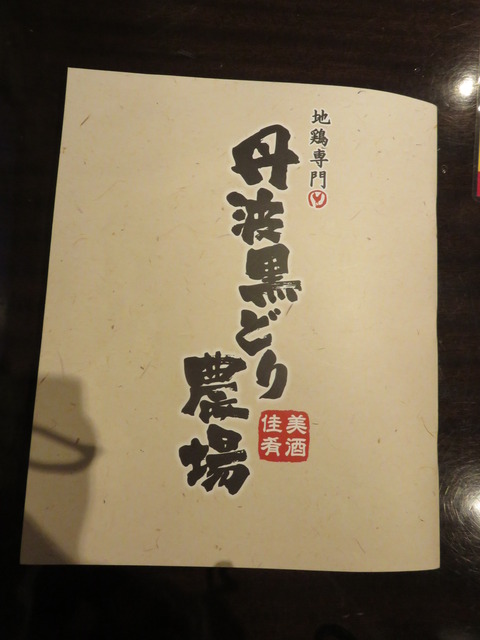 地鶏専門
丹波黒どり
農場
美酒
佳肴